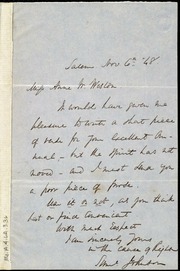 Salem Nov. 6th '48
Miss Anne W. Weston
It would have given me
pleasure to write a short piece
of verse for your excellent An-
nual - but the Spirit has not
moved - and I must send you
a poor piece of prose.
Use it or not, as you think
best or find convenient
With much respect
I am sincerely Yours
in the Cause of Right
Saml Johnson